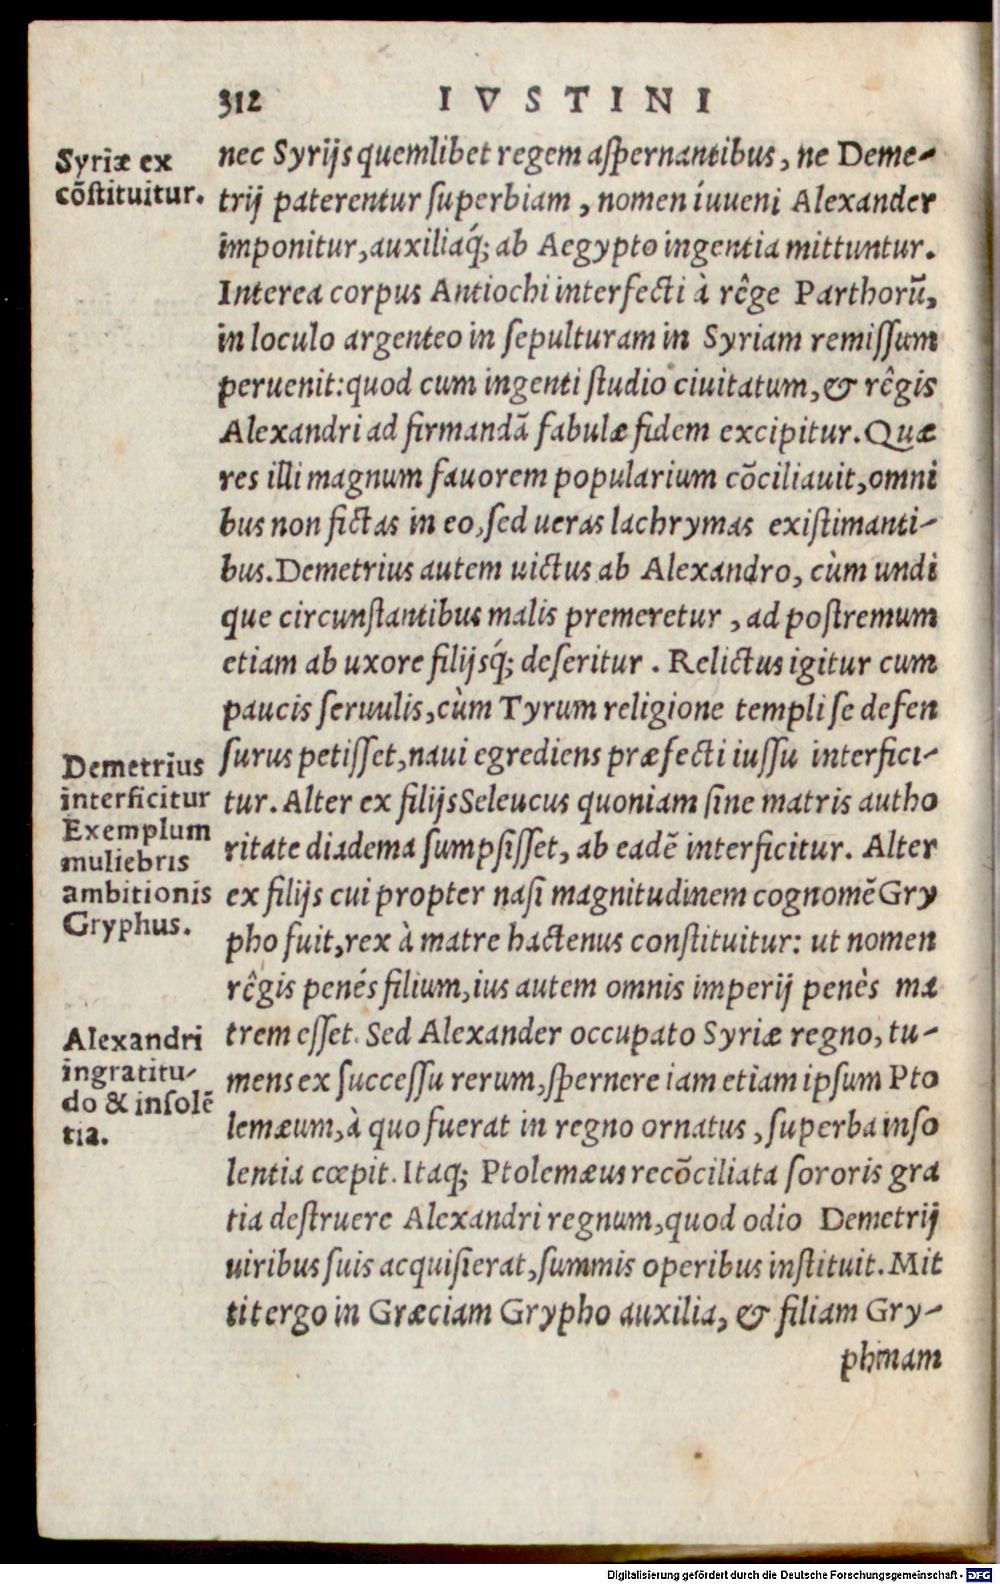 312 IVSTINI
Syriæ ex
cõstituitur.
nec Syrijs quemlibet regem aspernantibus, ne Deme-
trij paterentur superbiam, nomen iuueni Alexander
imponitur, auxiliaq́; ab Aegypto ingentia mittuntur.
Interea corpus Antiochi interfecti à rêge Parthorũ,
in loculo argenteo in sepulturam in Syriam remissum
peruenit: quod cum ingenti studio ciuitatum, & rêgis
Alexandri ad firmandã fabulæ fidem excipitur. Quæ
res illi magnum fauorem popularium cõciliauit, omni
bus non fictas in eo, sed ueras lachrymas existimanti-
bus. Demetrius autem uictus ab Alexandro, cùm undi
que circunstantibus malis premeretur, ad postremum
etiam ab uxore filijsq́; deseritur. Relictus igitur cum
paucis seruulis, cùm Tyrum religione templi se defen
surus petisset, naui egrediens præfecti iussu interfici-
tur. Alter ex filijs Seleucus quoniam sine matris autho
ritate diadema sumpsisset, ab eadẽ interficitur. Alter
ex filijs cui propter nasi magnitudinem cognomẽ Gry
pho fuit, rex à matre hactenus constituitur: ut nomen
rêgis penés filium, ius autem omnis imperij penès ma
trem esset. Sed Alexander occupato Syriæ regno, tu-
mens ex successu rerum, spernere iam etiam ipsum Pto
lemæum, à quo fuerat in regno ornatus, superba inso
lentia cœpit. Itaq; Ptolemæus recõciliata sororis gra
tia destruere Alexandri regnum, quod odio Demetrij
uiribus suis acquisierat, summis operibus instituit. Mit
tit ergo in Græciam Grypho auxilia, & filiam Gry-
phinam
Demetrius
interficitur
Exemplum
muliebris
ambitionis
Gryphus.
Alexandri
ingratitu-
do & insolẽ
tia.
Digitalisierung gefördert durch die Deutsche Forschungsgemeinschaft - DFG